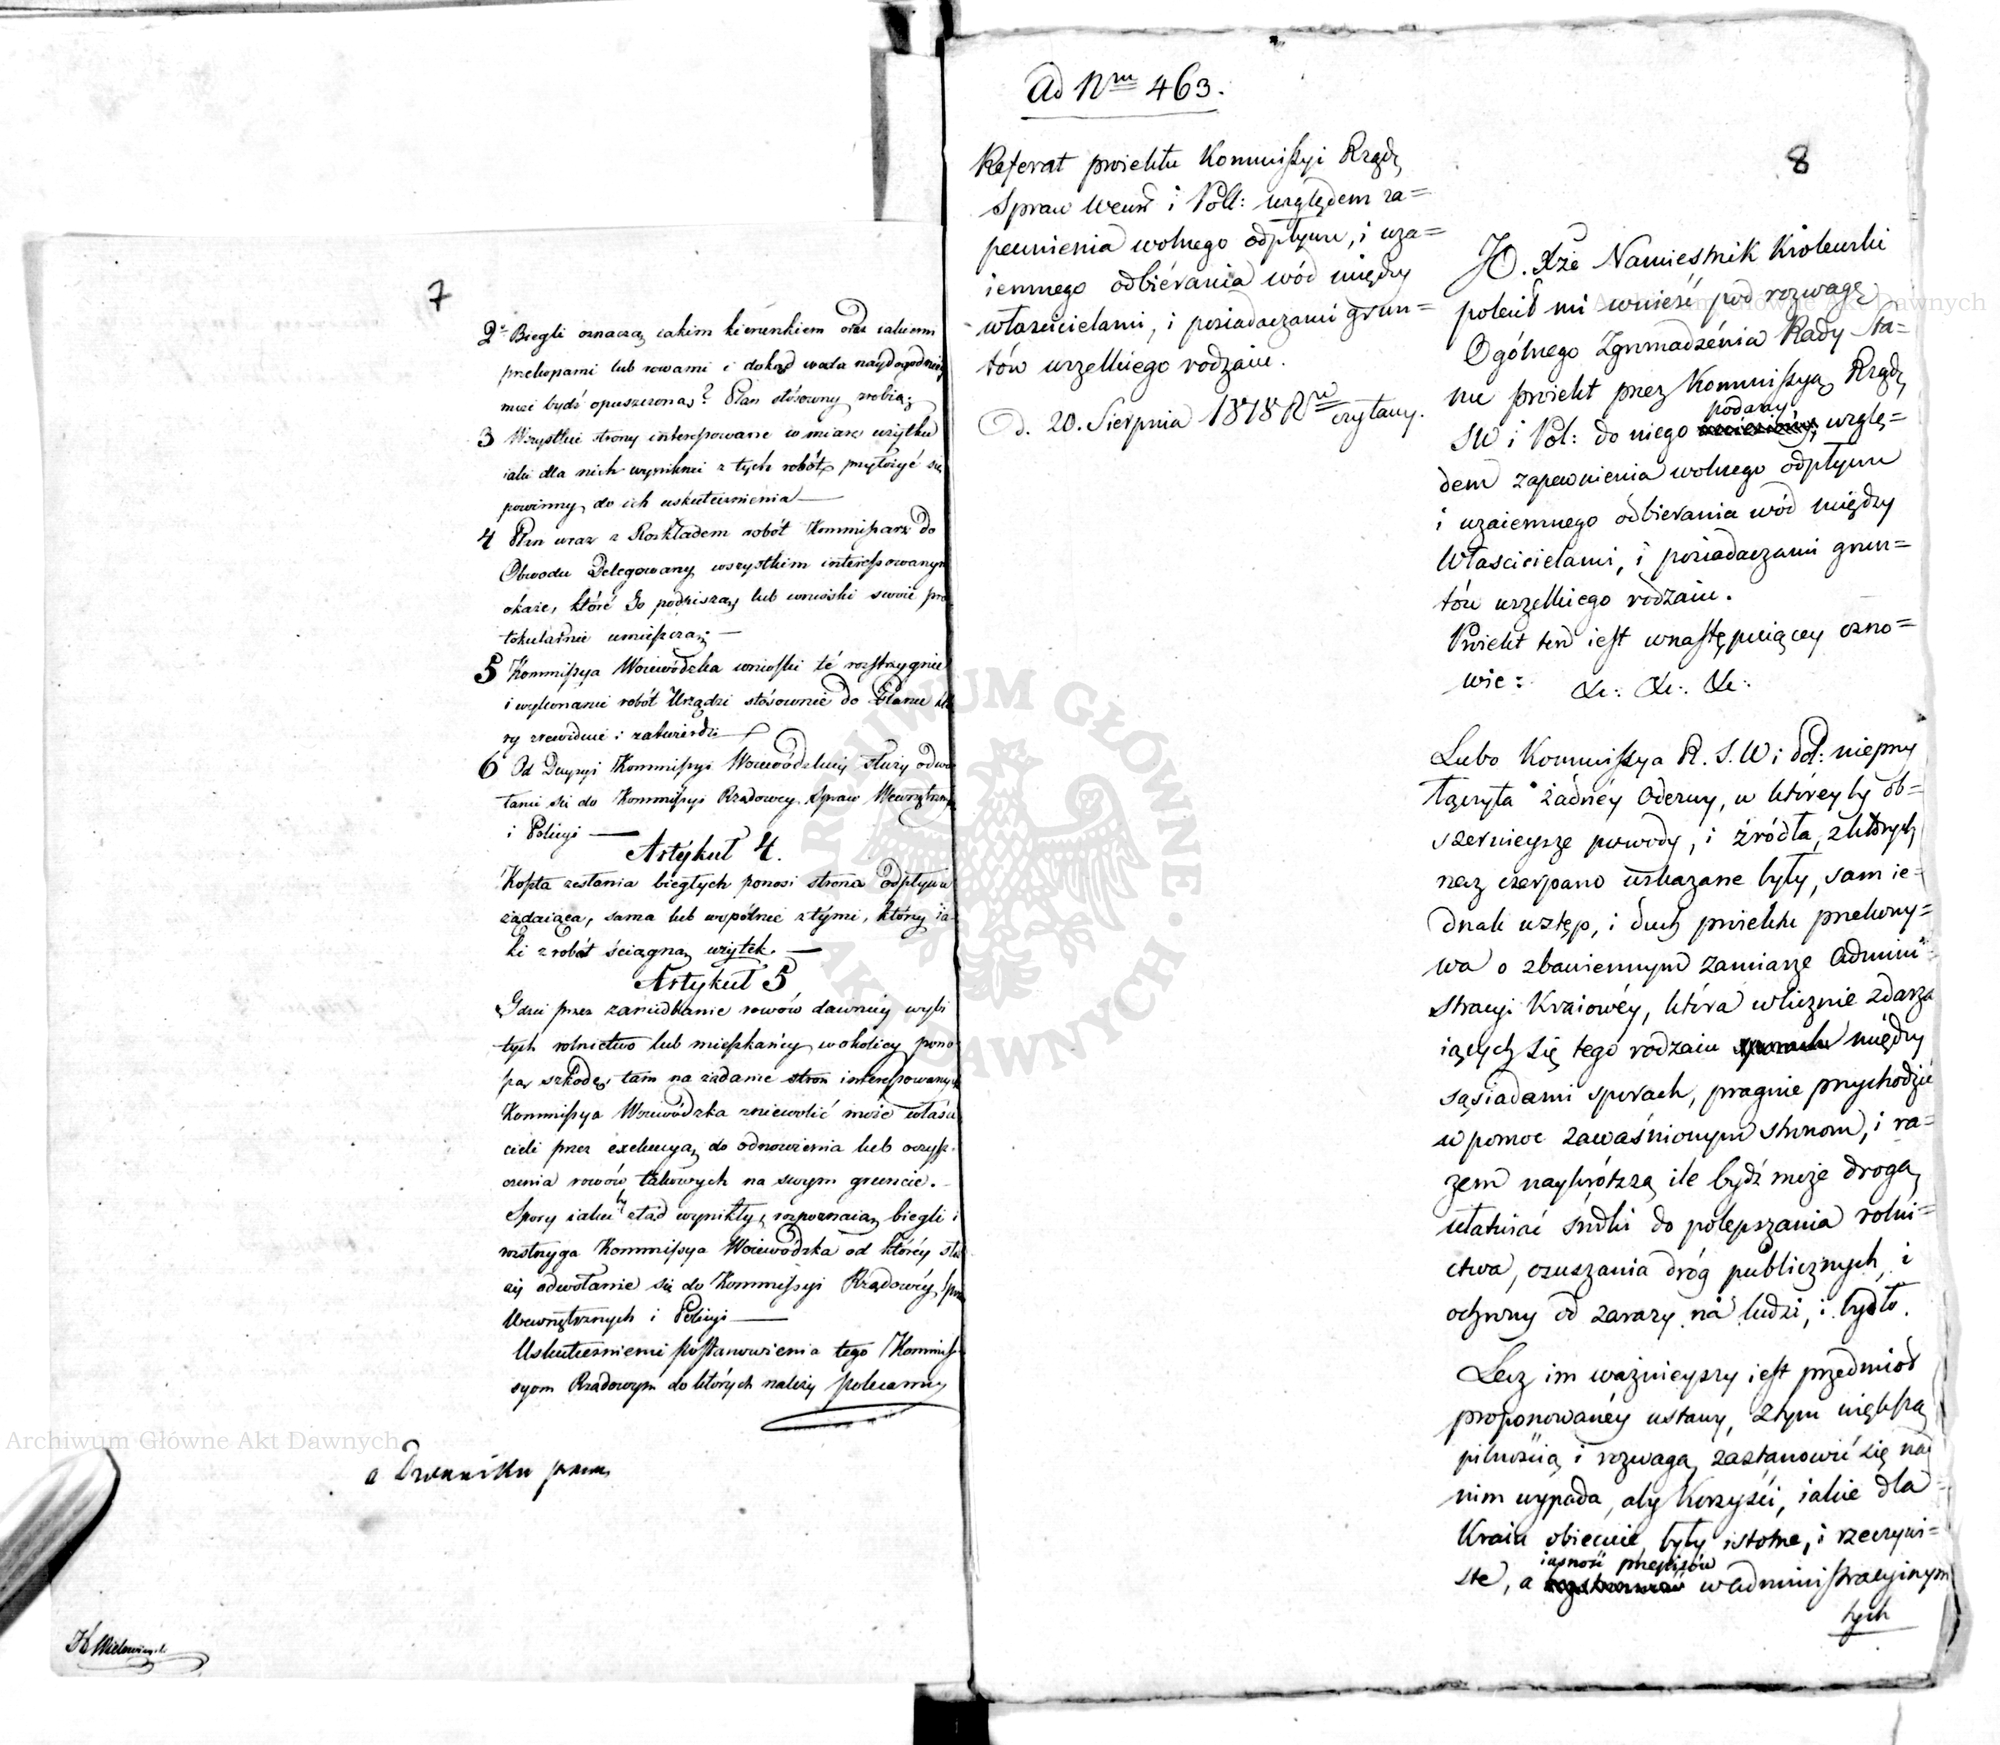 7
2° Biegli oznaczą iakim kierunkiem oraz iakiemi
przekopami lub rowami i dokąd woda naydogodniey
może bydź opuszczoną? Plan stósowny zrobią;
3 Wszystkie strony interessowane w miarę użytku
iaki dla nich wyniknie z tych robót, przyłożyć się
powinny do ich uskutecznienia —
4 Plan wraz z Rozkładem robót Kommissarz do
Obwodu Delegowany wszystkim interessowanym
okaże, które Go podpiszą, lub wnioski swoie pro
tokularnie umieszczą; —
5 Kommissya Woiewódzka wnioski te rozstrzygnie
i wykonanie robót Urządzi stósownie do Planu któ
ry zrewiduie i zatwierdzi —
6 Od Decyzyi Kommissyi Woiewódzkiey służy odwo
łanie się do Kommissyi Rządowey Spraw Wewnętrznych
i Policyi —
Artykuł 4.
Koszta zesłania biegłych ponosi strona odpływu
żądaiąca, sama lub wspólnie z tymi, którzy ia-
ki z robót ściągną użytek. —
Artykuł 5
Gdzie przez zaniedbanie rowów dawniey wybi
tych rolnictwo lub mieszkańcy w okolicy pono
szą szkodę, tam na żądanie stron interessowanych
Kommissya Woiewódzka zniewolić może właści
cieli przez exekucyą do odnowienia lub oczysz-
czenia rowów takowych na swym gruncie. -
Spory iakieby ztąd wynikły, rozpoznaią biegli i
rozstrzyga Kommissya Woiewódzka od którey słu
ży odwołanie się do Kommissyi Rządowéy Spraw
Wewnętrznych i Policyi —
Uskutecznienie postanowienia tego Kommis-
syom Rządowym do których należy polecamy
a Dzienniku praw,
Ad Nrm 463.
Referat proiektu Kommissyi Rządz
Spraw Wewn i Poll: względem za=
pewnienia wolnego odpływu, i wza=
iemnego odbiérania wód między
właścicielami, i posiadaczami grun=
tów wszelkiego rodzaiu.
D. 20. Sierpnia 1818 Ru czytany.
8
JO. Xże Namiestnik Królewski
polecił mi wnieść pod rozwagę
Ogólnego Zgromadzénia Rady Sta=
nu proiekt przez Kommissyą Rządz
SW i Pol: do niego podany, wzglę=
dem zapewnienia wolnego odpływu
i wzaiemnego odbierania wód między
Właścicielami, i posiadaczami grun=
tów wszelkiego rodzaiu.
Proiekt ten iest w następuiącey osno=
wie: &c: &c: &c:
Lubo Kommissya R. S. W i Pol: nieprzy
łączyła żadnéy Odezwy, w któreyby ob=
szernieysze powody, i źródła, z których
rzecz czerpano wskazane były, sam ie=
dnak wstęp, i duch proiektu przekony=
wa o zbawiennym zamiarze Admini=
stracyi Kraiowéy, która w licznie zdarza
iących się tego rodzaiu między
sąsiadami sporach, pragnie przychodzić
w pomoc zawaśnionym stronom, i ra=
zem naykrótszą ile bydź może drogą
ułatwiać środki do polepszania rolni=
ctwa, osuszania dróg publicznych, i
ochrony od zarazy na ludzi, i bydło.
Lecz im ważnieyszy iest przedmiot
proponowanéy ustawy, z tym większą
pilnością i rozwagą zastanowić się nad
nim wypada, aby korzyści, iakie dla
Kraiu obiecuie, były istotne, i rzeczywi=
ste, a iasność przepisów w administracyinym
tych